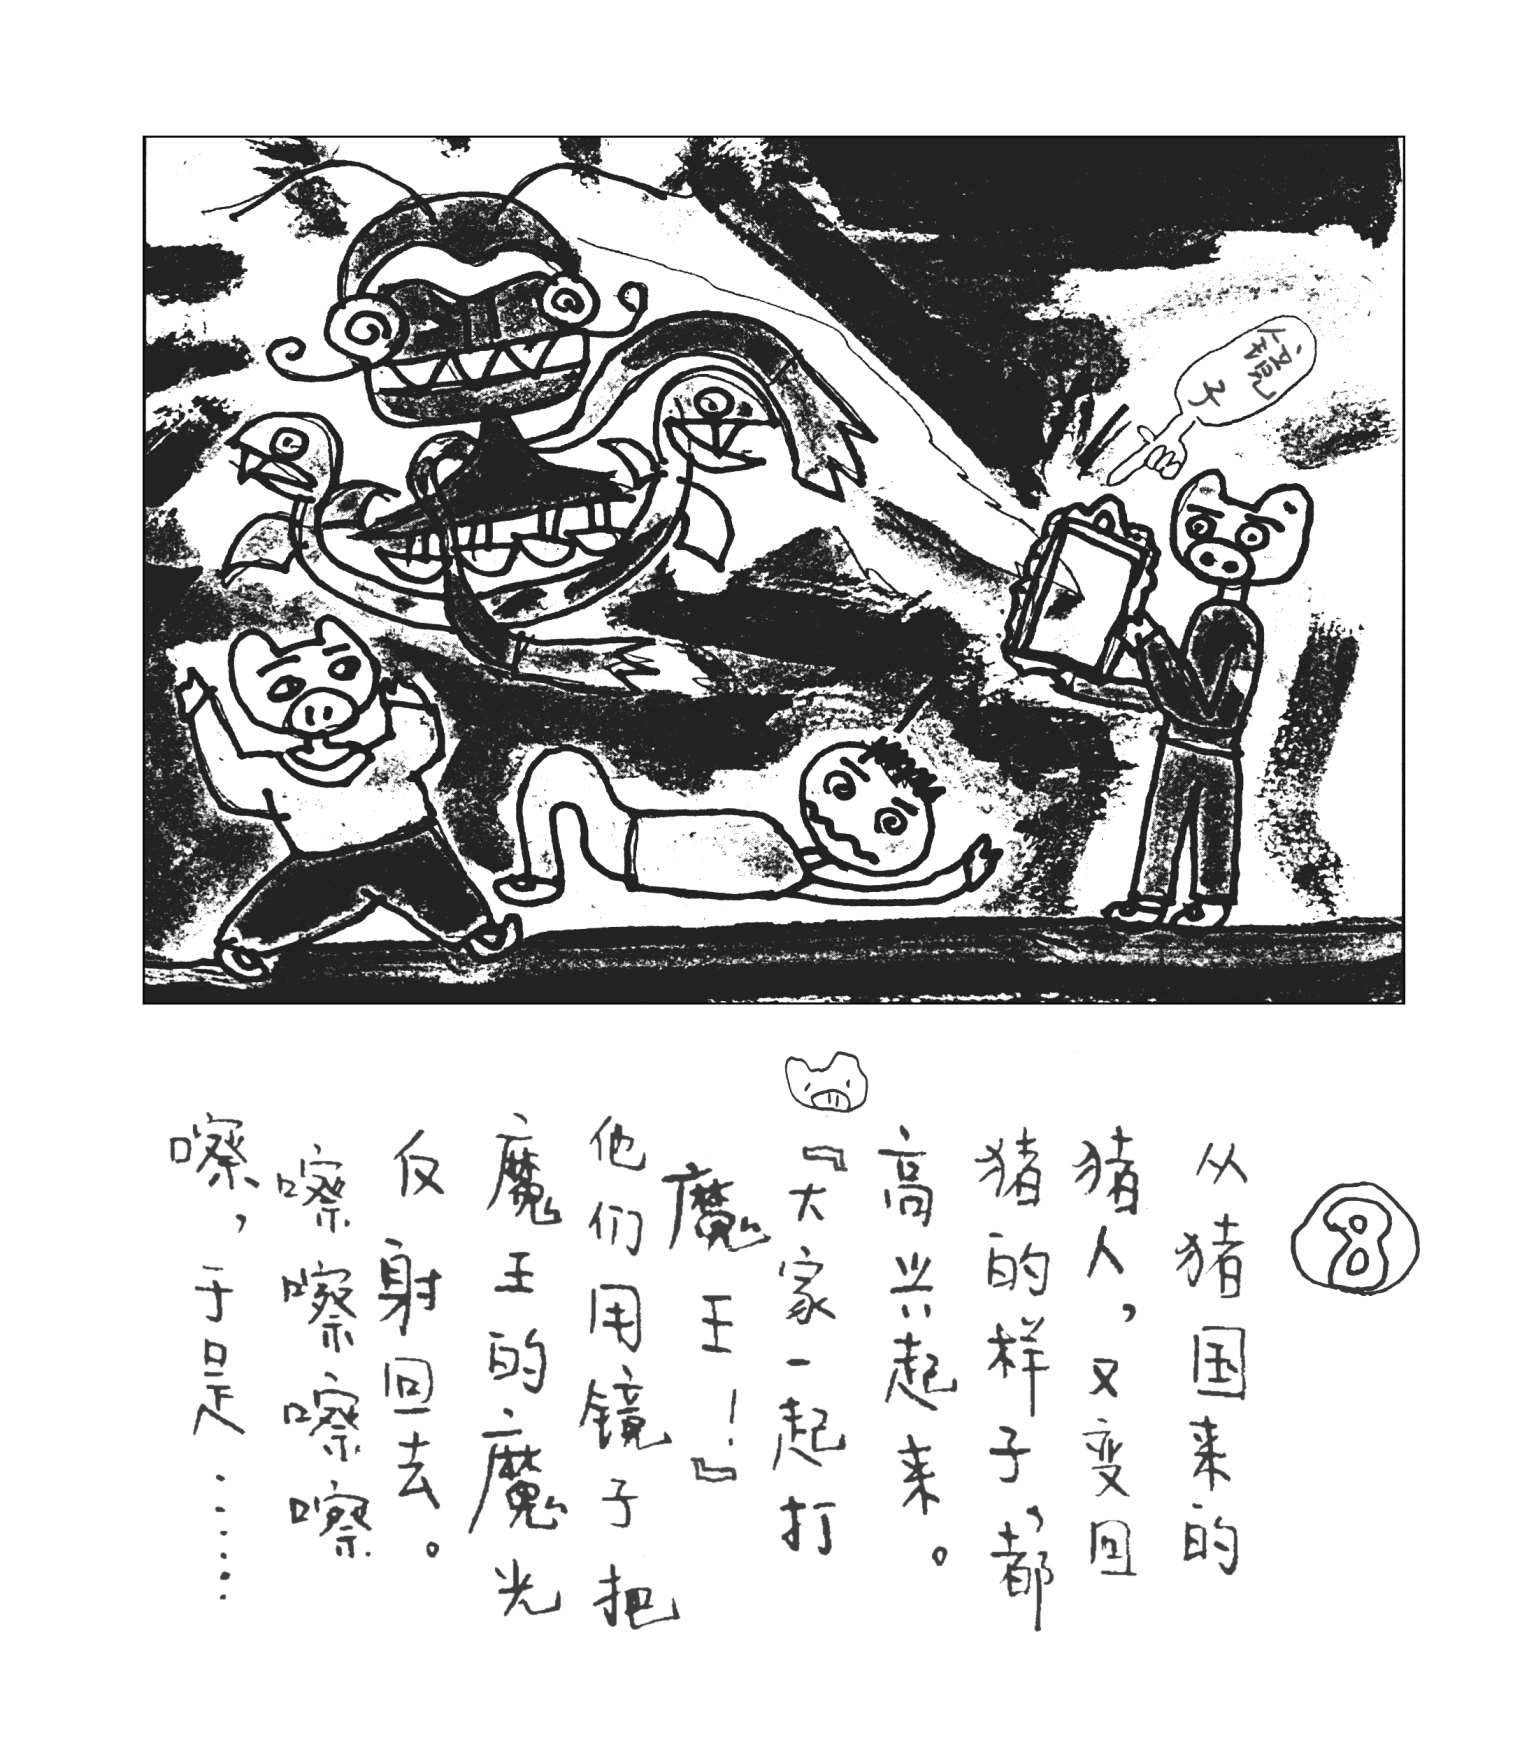 鏡子
8
从猪国来的
猪人，又变回
猪的样子，都
高兴起来。
『大家一起打
魔王！』
他们用镜子把
魔王的魔光
反射回去。
嚓嚓嚓嚓
嚓，于是……